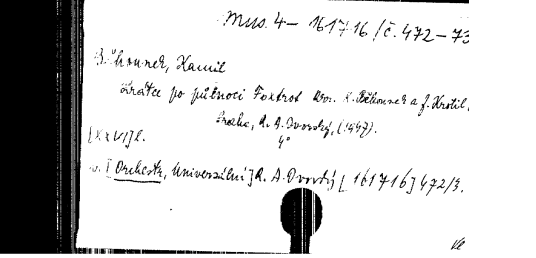 Mus. 4 - 161716/č. 472-73
Běhounek, Kamil
Krátce po půlnoci Foxtrot Dor. K. Běhounek a J. Krotil.
Praha, R. A. Dvorský, (1947).
4°
[XXVI] l.
in. [Orchestr, Universální] R. A. Dvorský [161716] 472/3.